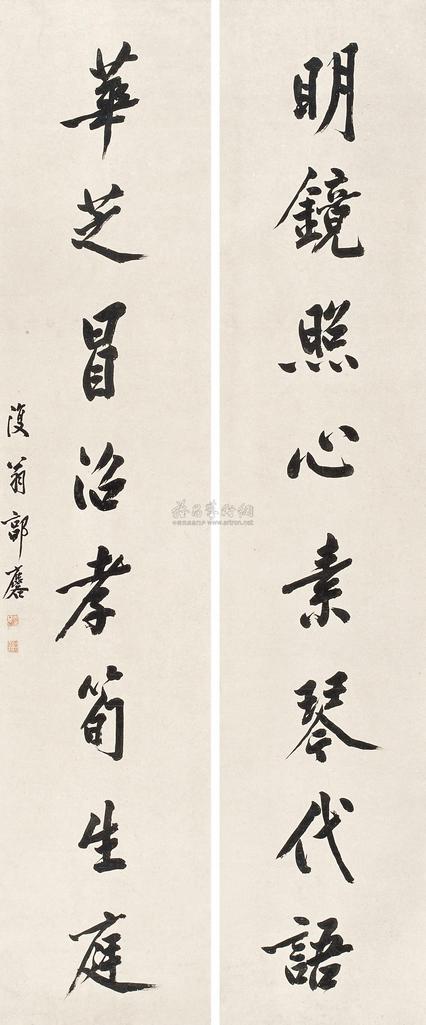 明鏡照心素琴代語
華芝冒沼孝筍生庭
復翁郭麐
www.artron.net